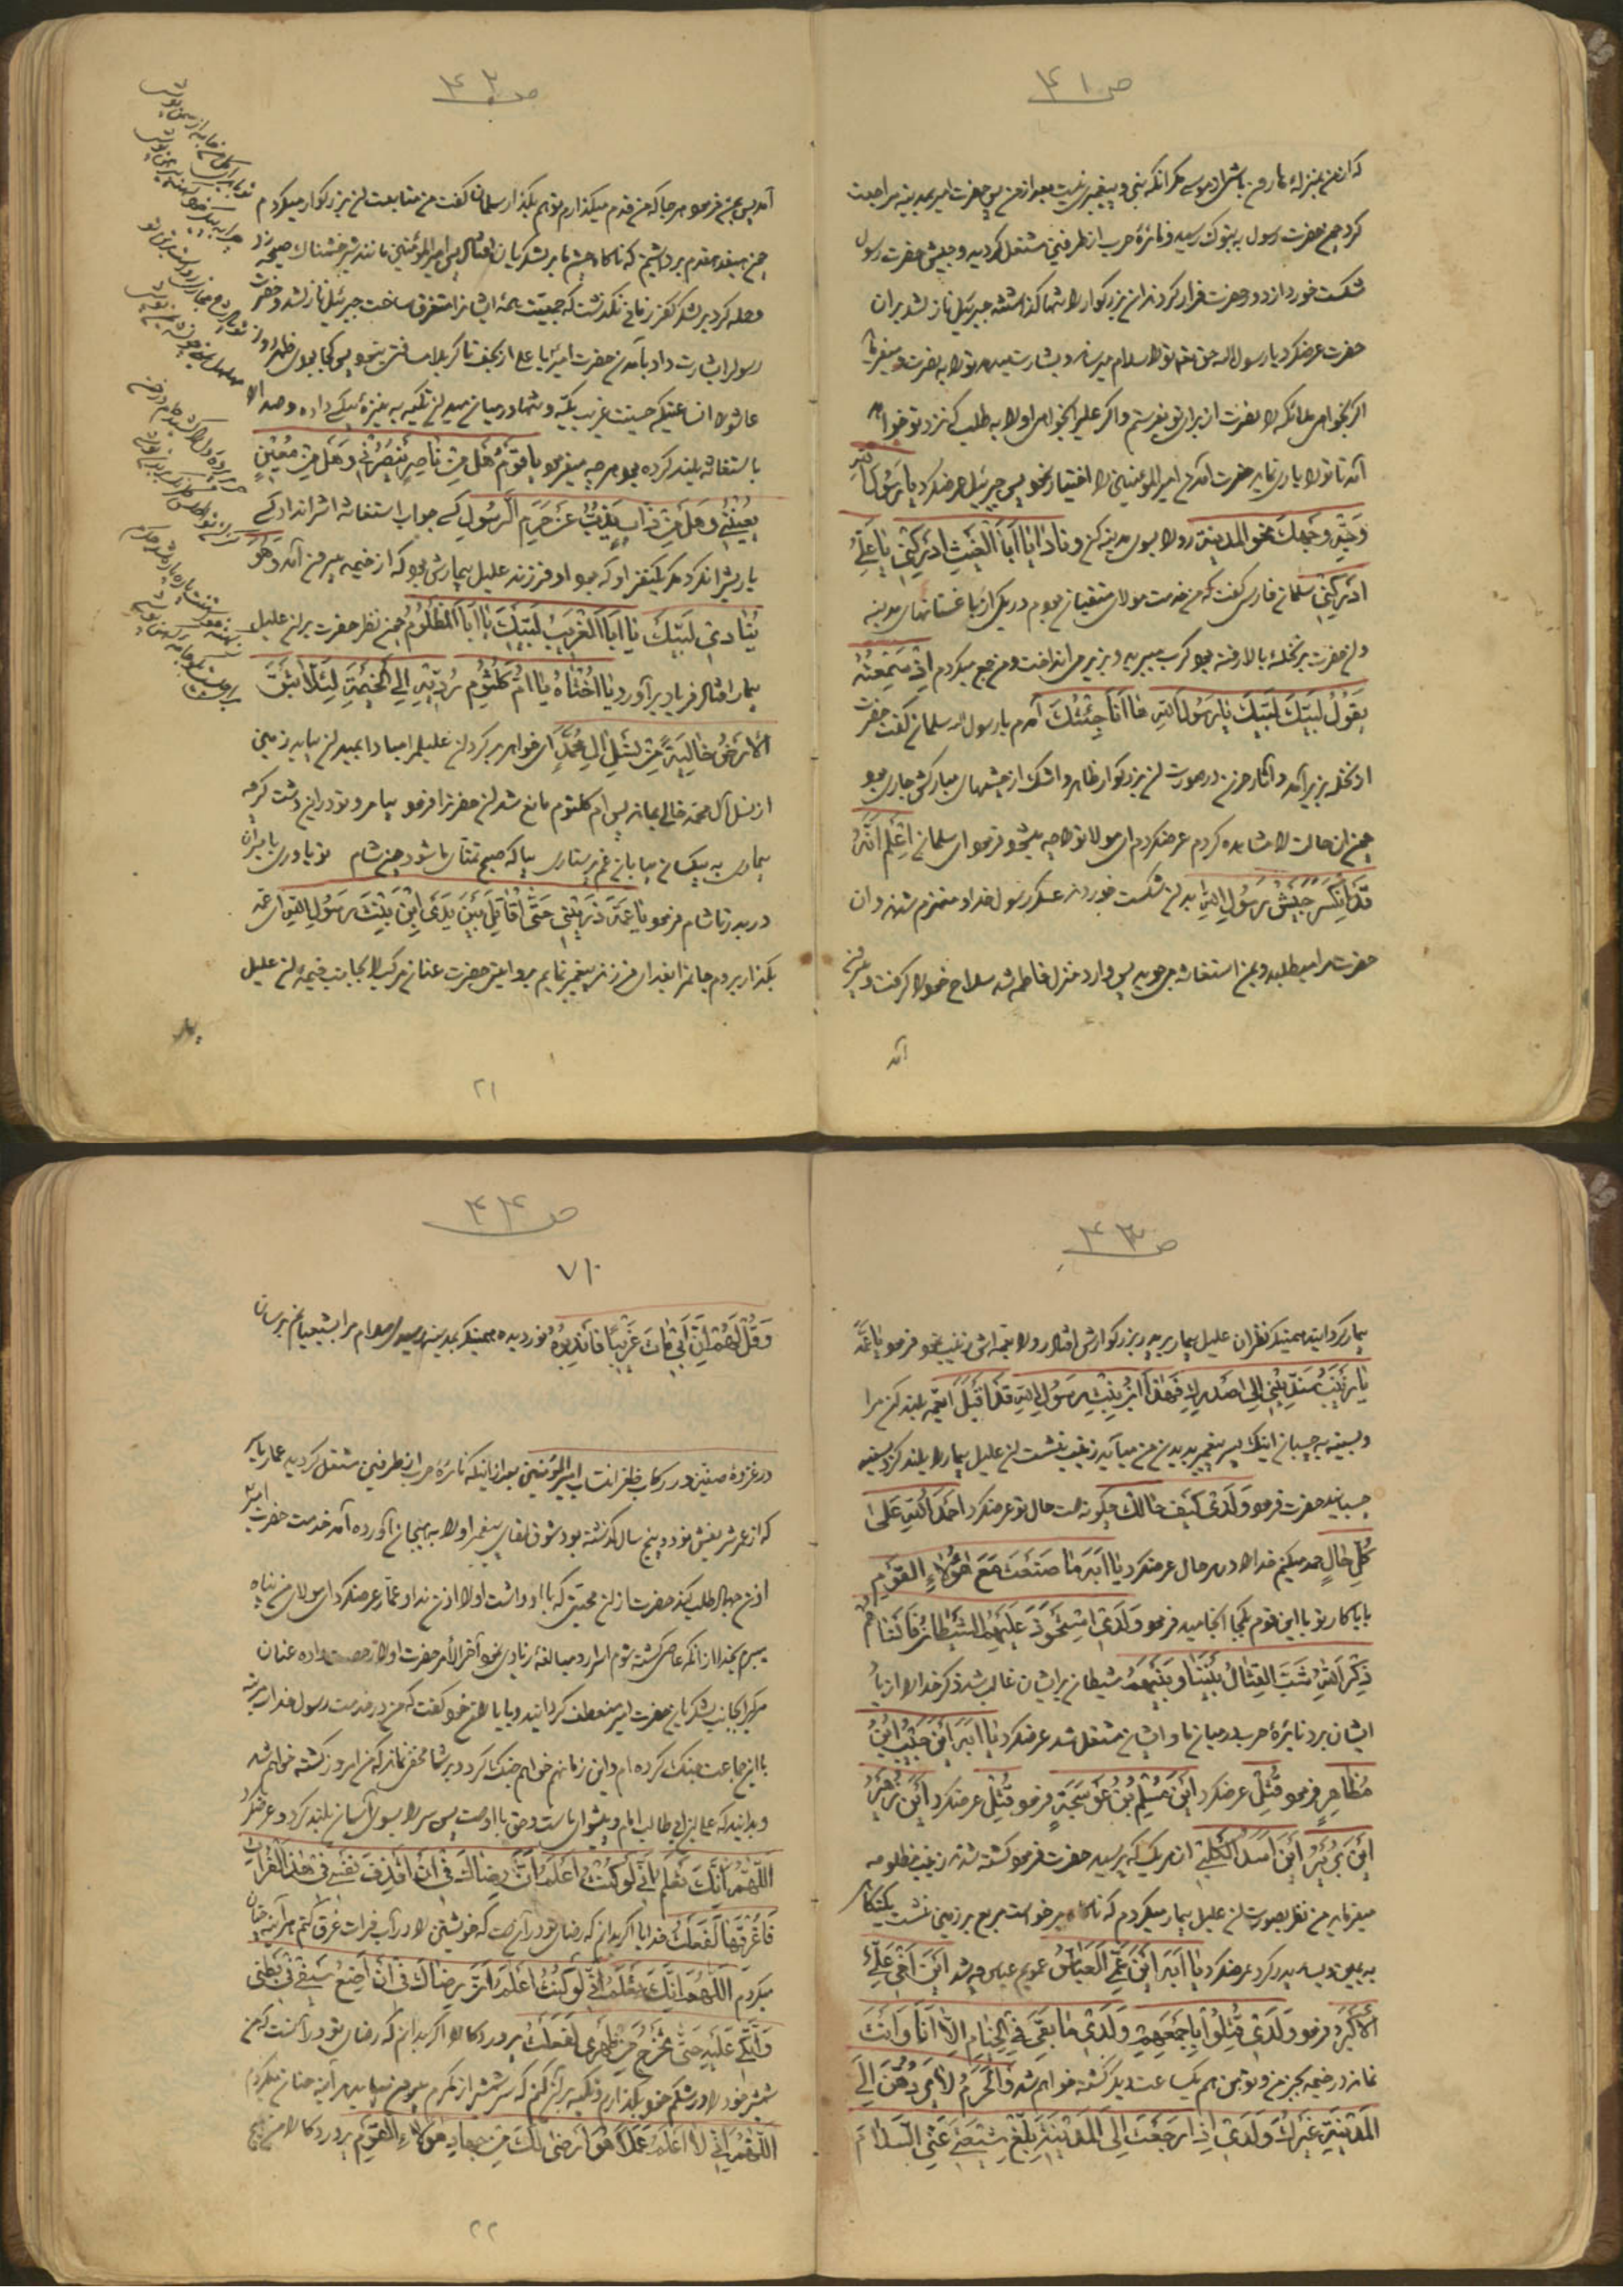 ص ۴۱
که از من بمنزله هارون باشی از موسی مگر آنکه نبی و پیغمبری نیست بعد از من پس حضرت امیر بمدینه مراجعت
کرد چون حضرت رسول به تبوک رسید و نائرهٔ حرب از طرفین مشتعل گردید و جیش حضرت رسول
شکست خورد از دور حضرت فرار کردند آن بزرگوار را تنها گذاشتند جبرئیل نازل شد بر آن
حضرت عرضکرد یا رسول الله حق تو را سلام میرساند و بشارت میدهد تو را به نصرت و میفرماید
اگر بخواهی ملائکه را بنصرت از برای تو بفرستم و اگر علی را بخواهی او را به طلب که نزد تو خواهد
آمد تا تو را یاری نماید حضرت آمدن امیر المؤمنین را اختیار نمود پس جبرئیل عرضکرد یا رسول الله
وجهک نحو المدینة رو را بسوی مدینه کن و ناد یا ابا الغیث ادرکنی یا علی
ادرکنی سلمان فارسی گفت که من خدمت مولای متقیان بودم در یکی از باغستانهای مدینه
و آن حضرت بر نخله بالا رفته بود کرب میبرید و بزیر می انداخت و من جمع میکردم اذ سمعته
یقول لبیک لبیک یا رسول الله ها انا جئتک آمدم یا رسول الله سلمان گفت حضرت
از نخله بزیر آمد و آثار حزن در صورت آن بزرگوار ظاهر و اشک از چشمهای مبارکش جاری بود
چون آن حالت را مشاهده کردم عرضکردم ای مولا تو را چه میشود فرمود ای سلمان اعلم انه
قد انکسر جیش رسول الله بدان شکست خوردند عسکر رسول خدا و منهزم شدند و آن
حضرت مرا میطلبد و بمن استغاثه میجوید پس وارد منزل فاطمه شد سلاح خود را گرفت و بیرون
آمد
ص ۴۲
آمد پس بمن فرمود هر جا که من قدم میگذارم تو هم بگذار سلمان گفت من متابعت آن بزرگوار میکردم
چون هفده قدم برداشتیم که ناگاه چشم ما بر لشکریان افتاد پس امیر المؤمنین مانند شیر خشمناک صیحه زد
و حمله کرد بر لشکر کفر زمانی نگذشت که جمعیت همه ایشان را متفرق ساخت جبرئیل نازل شد و حضرت
رسول را بشارت داد بآمدن حضرت امیر یا علی از نجف تا کربلا مسافتی نبود پس کجا بودی ظهر روز
عاشورا آنساعتیکه حسینت غریب یکه و تنها در میان میدان تکیه به نیزهٔ بیکسی داده و صدا
باستغاثه بلند کرده بود هر چه میفرمود یا قوم هل من ناصر ینصرنی و هل من معین
یعیننی و هل من ذاب یذب عن حرم الرسول کسی جواب استغاثه اش را نداد کسی
یاریش را نکرد مگر یکنفر او که بود او فرزند علیل بیمارش بود که از خیمه بیرون آمد و هو
ینادی لبیک یا ابا الغریب لبیک یا ابا المظلوم چون نظر حضرت بر آن علیل
بیمار افتاد فریاد برآورد یا اختاه یا ام کلثوم ردیه الی الخیمة لئلا تبقی
الارض خالیة من نسل آل محمد ای خواهر برگردان علیلم را مبادا بمیدان بیاید زمین
از نسل آل محمد خالی بماند پس ام کلثوم مانع شد آن حضرت را فرمود بیا مرو تو در این دشت کرم
بیماری به بیکسان بیابان غم پرستاری بیا که صبح تمنای ما شود چون شام تو یاوری با میران
دربدر تا شام فرمود یا عمة ذرینی حتی اقاتل بین یدی ابن بنت رسول الله ای عمه
بگذار بروم جانم را بفدای فرزند پیغمبر نمایم بروایتی حضرت عنان مرکب را بجانب خیمهٔ آن علیل
بیمار
۲۱
ص ۴۳
بیمار گردانید همینکه نظر آن علیل بیمار بر پدر بزرگوارش افتاد رو را بعمه اش زینب نمود فرمود یا عمة
یا زینب سندینی الی صدرک فهذا ابن بنت رسول الله قد اقبل ای عمه بلند کن مرا
و بسینه بچسبان اینک پسر پیغمبر بدیدن من میآید زینب نشست آن علیل بیمار را بلند کرد بسینه
چسبانید حضرت فرمود ولدی کیف حالک چگونه است حال تو عرضکرد احمد الله علی
کل حال حمد میکنم خدا را در هر حال عرضکرد یا ابه ما صنعت مع هؤلاء القوم
بابا کار تو با این قوم بکجا انجامید فرمود ولدی استحوذ علیهم الشیطان فانساهم
ذکر الله شب القتال بیننا و بینهم شیطان بر ایشان غالب شد ذکر خدا را از یاد
ایشان برد نایرهٔ حرب در میان ما و ایشان مشتعل شد عرضکرد یا ابه این حبیب ابن
مظاهر فرمود قتل عرضکرد این مسلم بن عوسجة فرمود قتل عرضکرد این زهیر
این بریر این اسد الکلبی از هر یک که پرسید حضرت فرمود کشته شدند زینب مظلومه
میفرماید من نظر بصورت آن علیل بیمار میکردم که ناگاه برخواست سریع بر زمین نشست یکنگاه
به یمین و یسار پدر کرد عرضکرد یا ابه این عمی العباس عمویم عباس چه شد این اخی علی
الاکبر فرمود ولدی قتلوا باجمعهم ولدی ما بقی فی الخیام الا انا و انت
نمانده در خیمه بجز من و تو من هم یکساعت دیگر کشته خواهم شد و الحرم لا یردهن الی
المدینة غیرک ولدی اذا رجعت الی المدینة بلغ شیعتی عنی السلام
ص ۴۴
۷۱۰
و قل لهم ان ابی مات غریبا فاندبوه نور دیده همینکه بمدینه رسیدی سلام مرا بشیعیانم برسان
در غزوهٔ صفین در رکاب ظفر انتساب امیر المؤمنین بعد از اینکه نائرهٔ حرب از طرفین مشتعل گردید عمار یاسر
که از عمر شریفش نود و پنج سال گذشته بود شوق لقای پیغمبر او را به هیجان آورده آمد خدمت حضرت امیر
اذن جهاد طلب کند حضرت از آن محبتی که با او داشت او را اذن نداد عمار عرضکرد ای مولای من پناه
میبرم بخدا از آنکه عاصی گشته شوم اسرار و مبالغهٔ زیادی نمود آخر الأمر حضرت او را رخصت داده عنان
مرکب را بجانب لشکریان حضرت امیر منعطف گردانید و با یاران خود گفت که من در خدمت رسول خدا سه مرتبه
با این جماعت جنگ کرده ام و این زمان هم خواهم جنگ کرد و بر شما مخفی نماند که من امروز کشته خواهم شد
و بدانید که علی بن ابی طالب امام و پیشوای ماست و حق با اوست پس سر را بسوی آسمان بلند کرد و عرضکرد
اللهم انک تعلم انی لو کنت اعلم ان رضاک فی ان اقذف نفسی فی هذا الفرات
فاغرقها لفعلت خدایا اگر بدانم که رضای تو در آن است که خویشتن را در آب فرات غرق کنم هر آینه چنان
میکردم اللهم انک تعلم انی لو کنت اعلم ان رضاک فی ان اضع سیفی فی بطنی
و اتکی علیه حتی یخرج من ظهری لفعلت پروردگارا اگر بدانم که رضای تو در آنست که من
شمشیر خود را در شکم خود بگذارم و تکیه بر آن کنم که سر شمشیر از کمرم بیرون بیاید هر آینه چنان میکردم
اللهم انی لا اعلم عملا هو ارضی لک من جهاد هؤلاء القوم پروردگارا من هیچ
۲۲